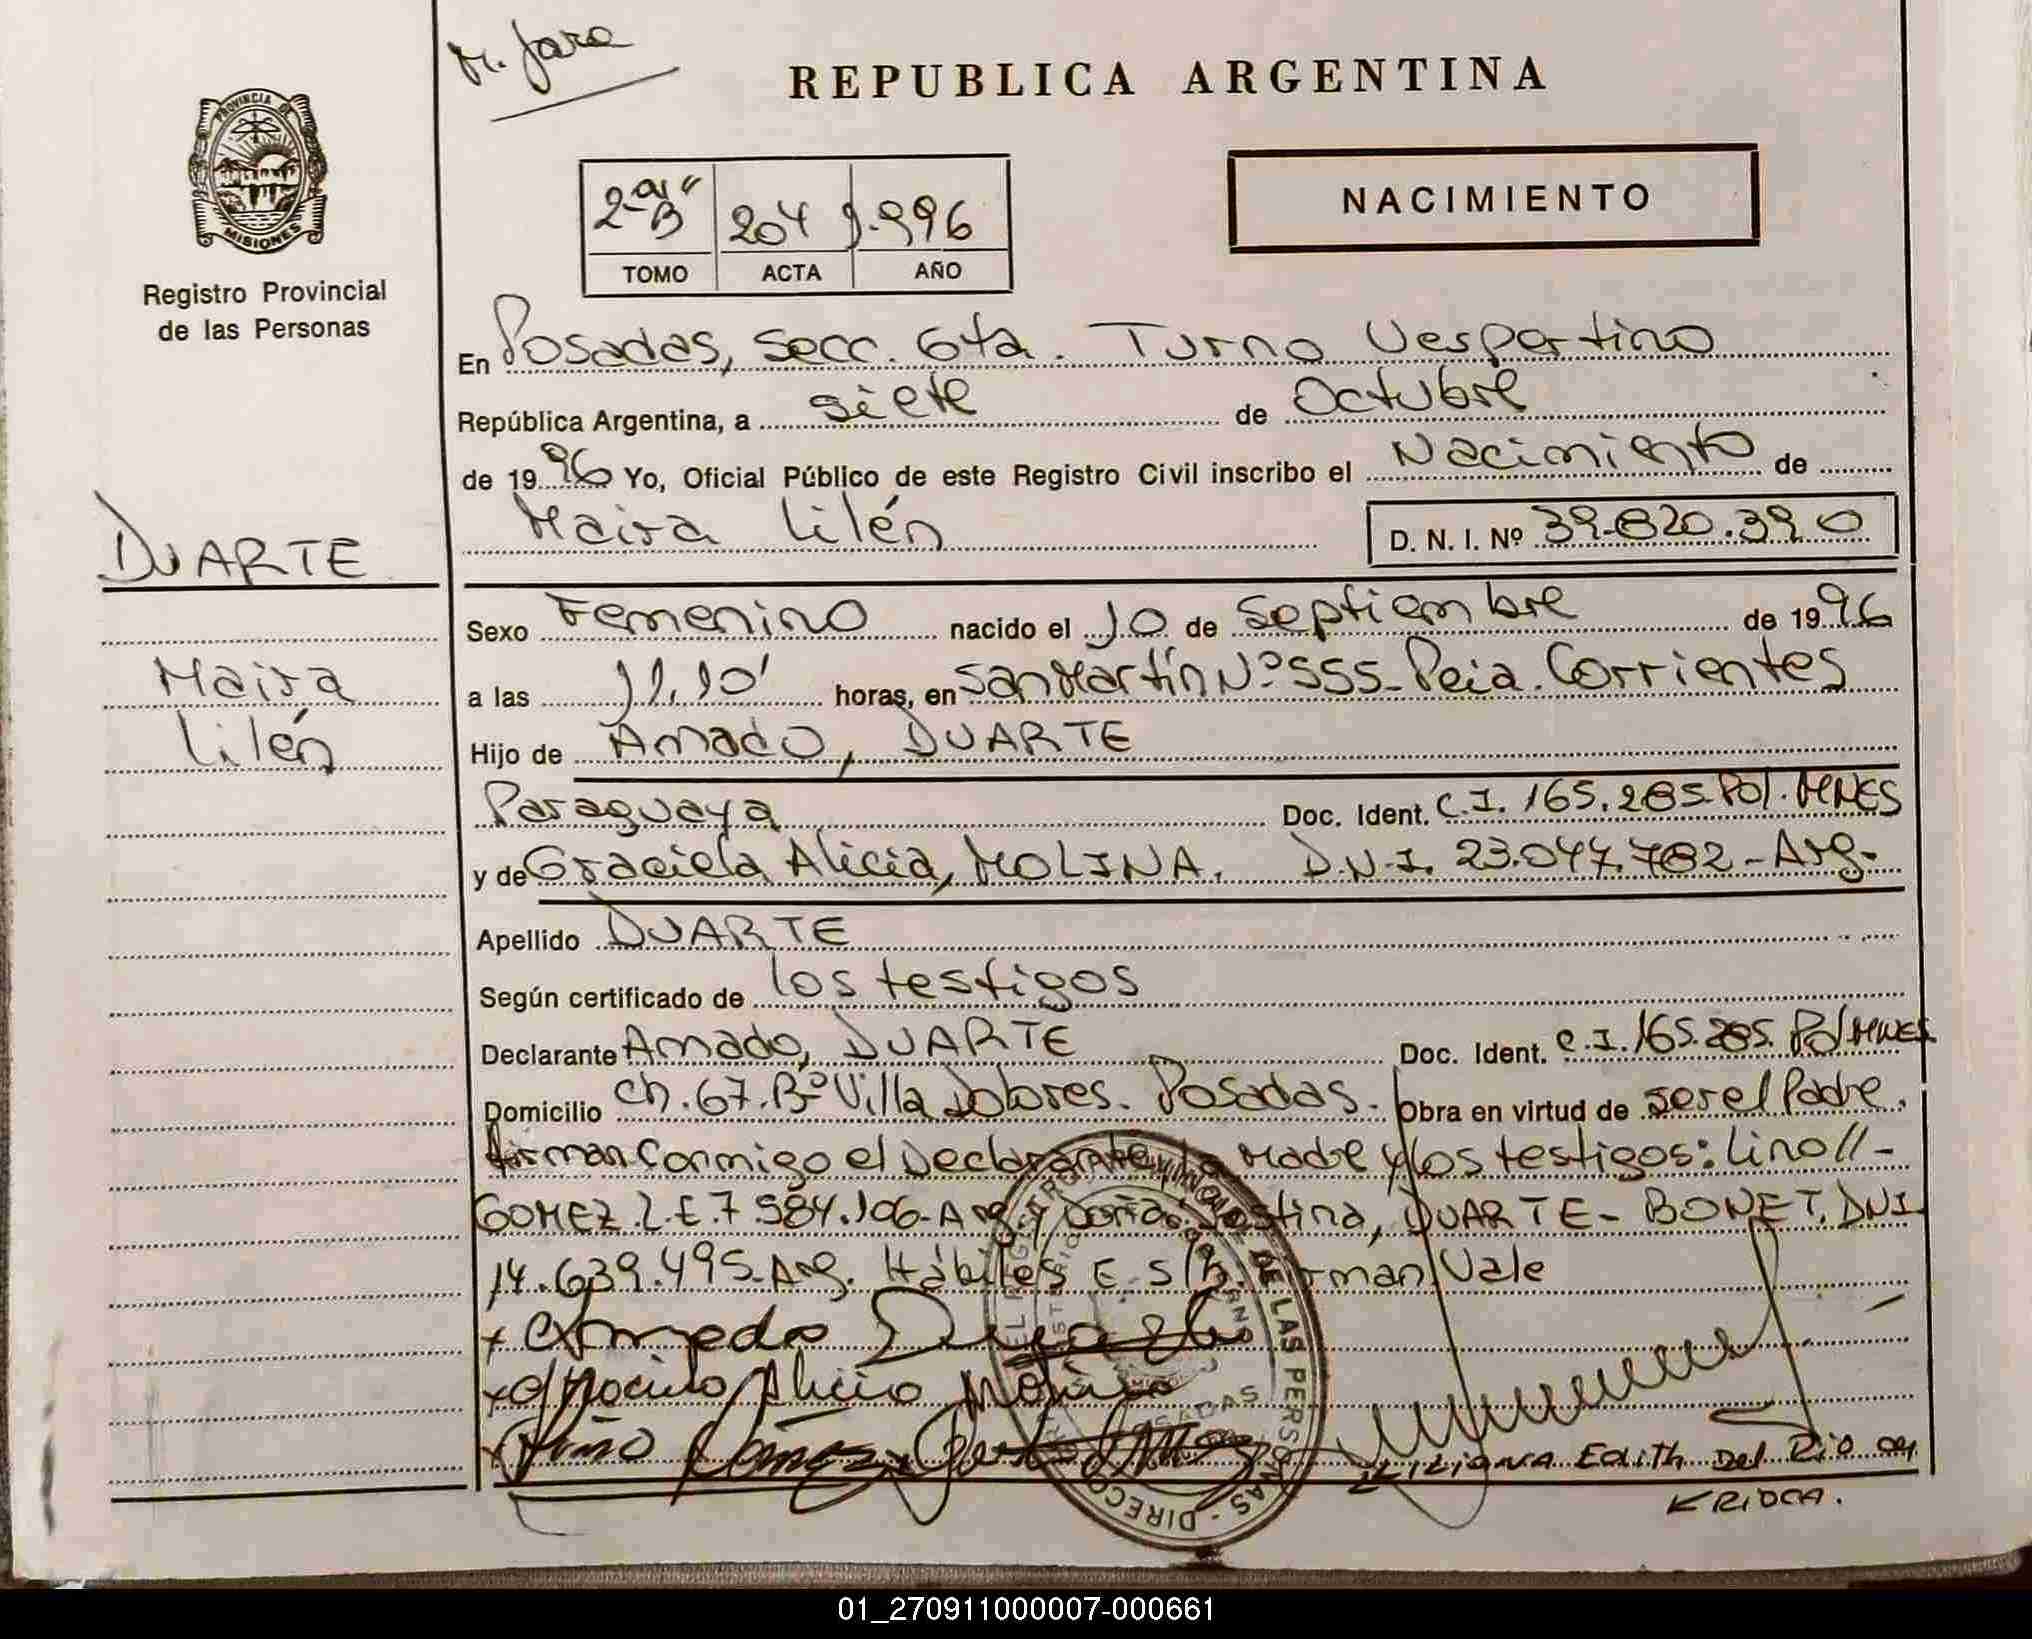 M. Jara
REPUBLICA ARGENTINA
PROVINCIA DE
MISIONES
Registro Provincial
de las Personas
2-a "B" 204 1.996
TOMO ACTA AÑO
NACIMIENTO
En Posadas, Secc. 6ta. Turno Vespertino
República Argentina, a siete de Octubre
de 1996 Yo, Oficial Público de este Registro Civil inscribo el Nacimiento de
Maira Lilén D. N. I. Nº 39.820.390
DUARTE
Maira
Lilén
Sexo Femenino nacido el 10 de Septiembre de 1996
a las 11.10' horas, en San Martín Nº 555- Pcia. Corrientes
Hijo de Amado, DUARTE
Paraguaya Doc. Ident. C.I. 165.285 Pol. MNES
y de Graciela Alicia, MOLINA. D.N.I. 23.047.782-Arg-
Apellido DUARTE
Según certificado de los testigos
Declarante Amado, DUARTE Doc. Ident. C.I. 165.285. Pol MNES
Domicilio Ch. 67. Bº Villa Dolores. Posadas. Obra en virtud de ser el Padre.
Firman Conmigo el Declarante, la Madre y los testigos: Lino //-
GOMEZ. L.E. 7.584.106-Arg. y Doña Justina, DUARTE - BONET. DNI
14.639.495-Arg. Hábiles E. S/R. Firman Vale
Amado Duarte
Alicia Molina
LILIANA Edith Del Rio de
KRIDCA.
DE LAS PERSONAS - DIRECC
POSADAS
01_270911000007-000661